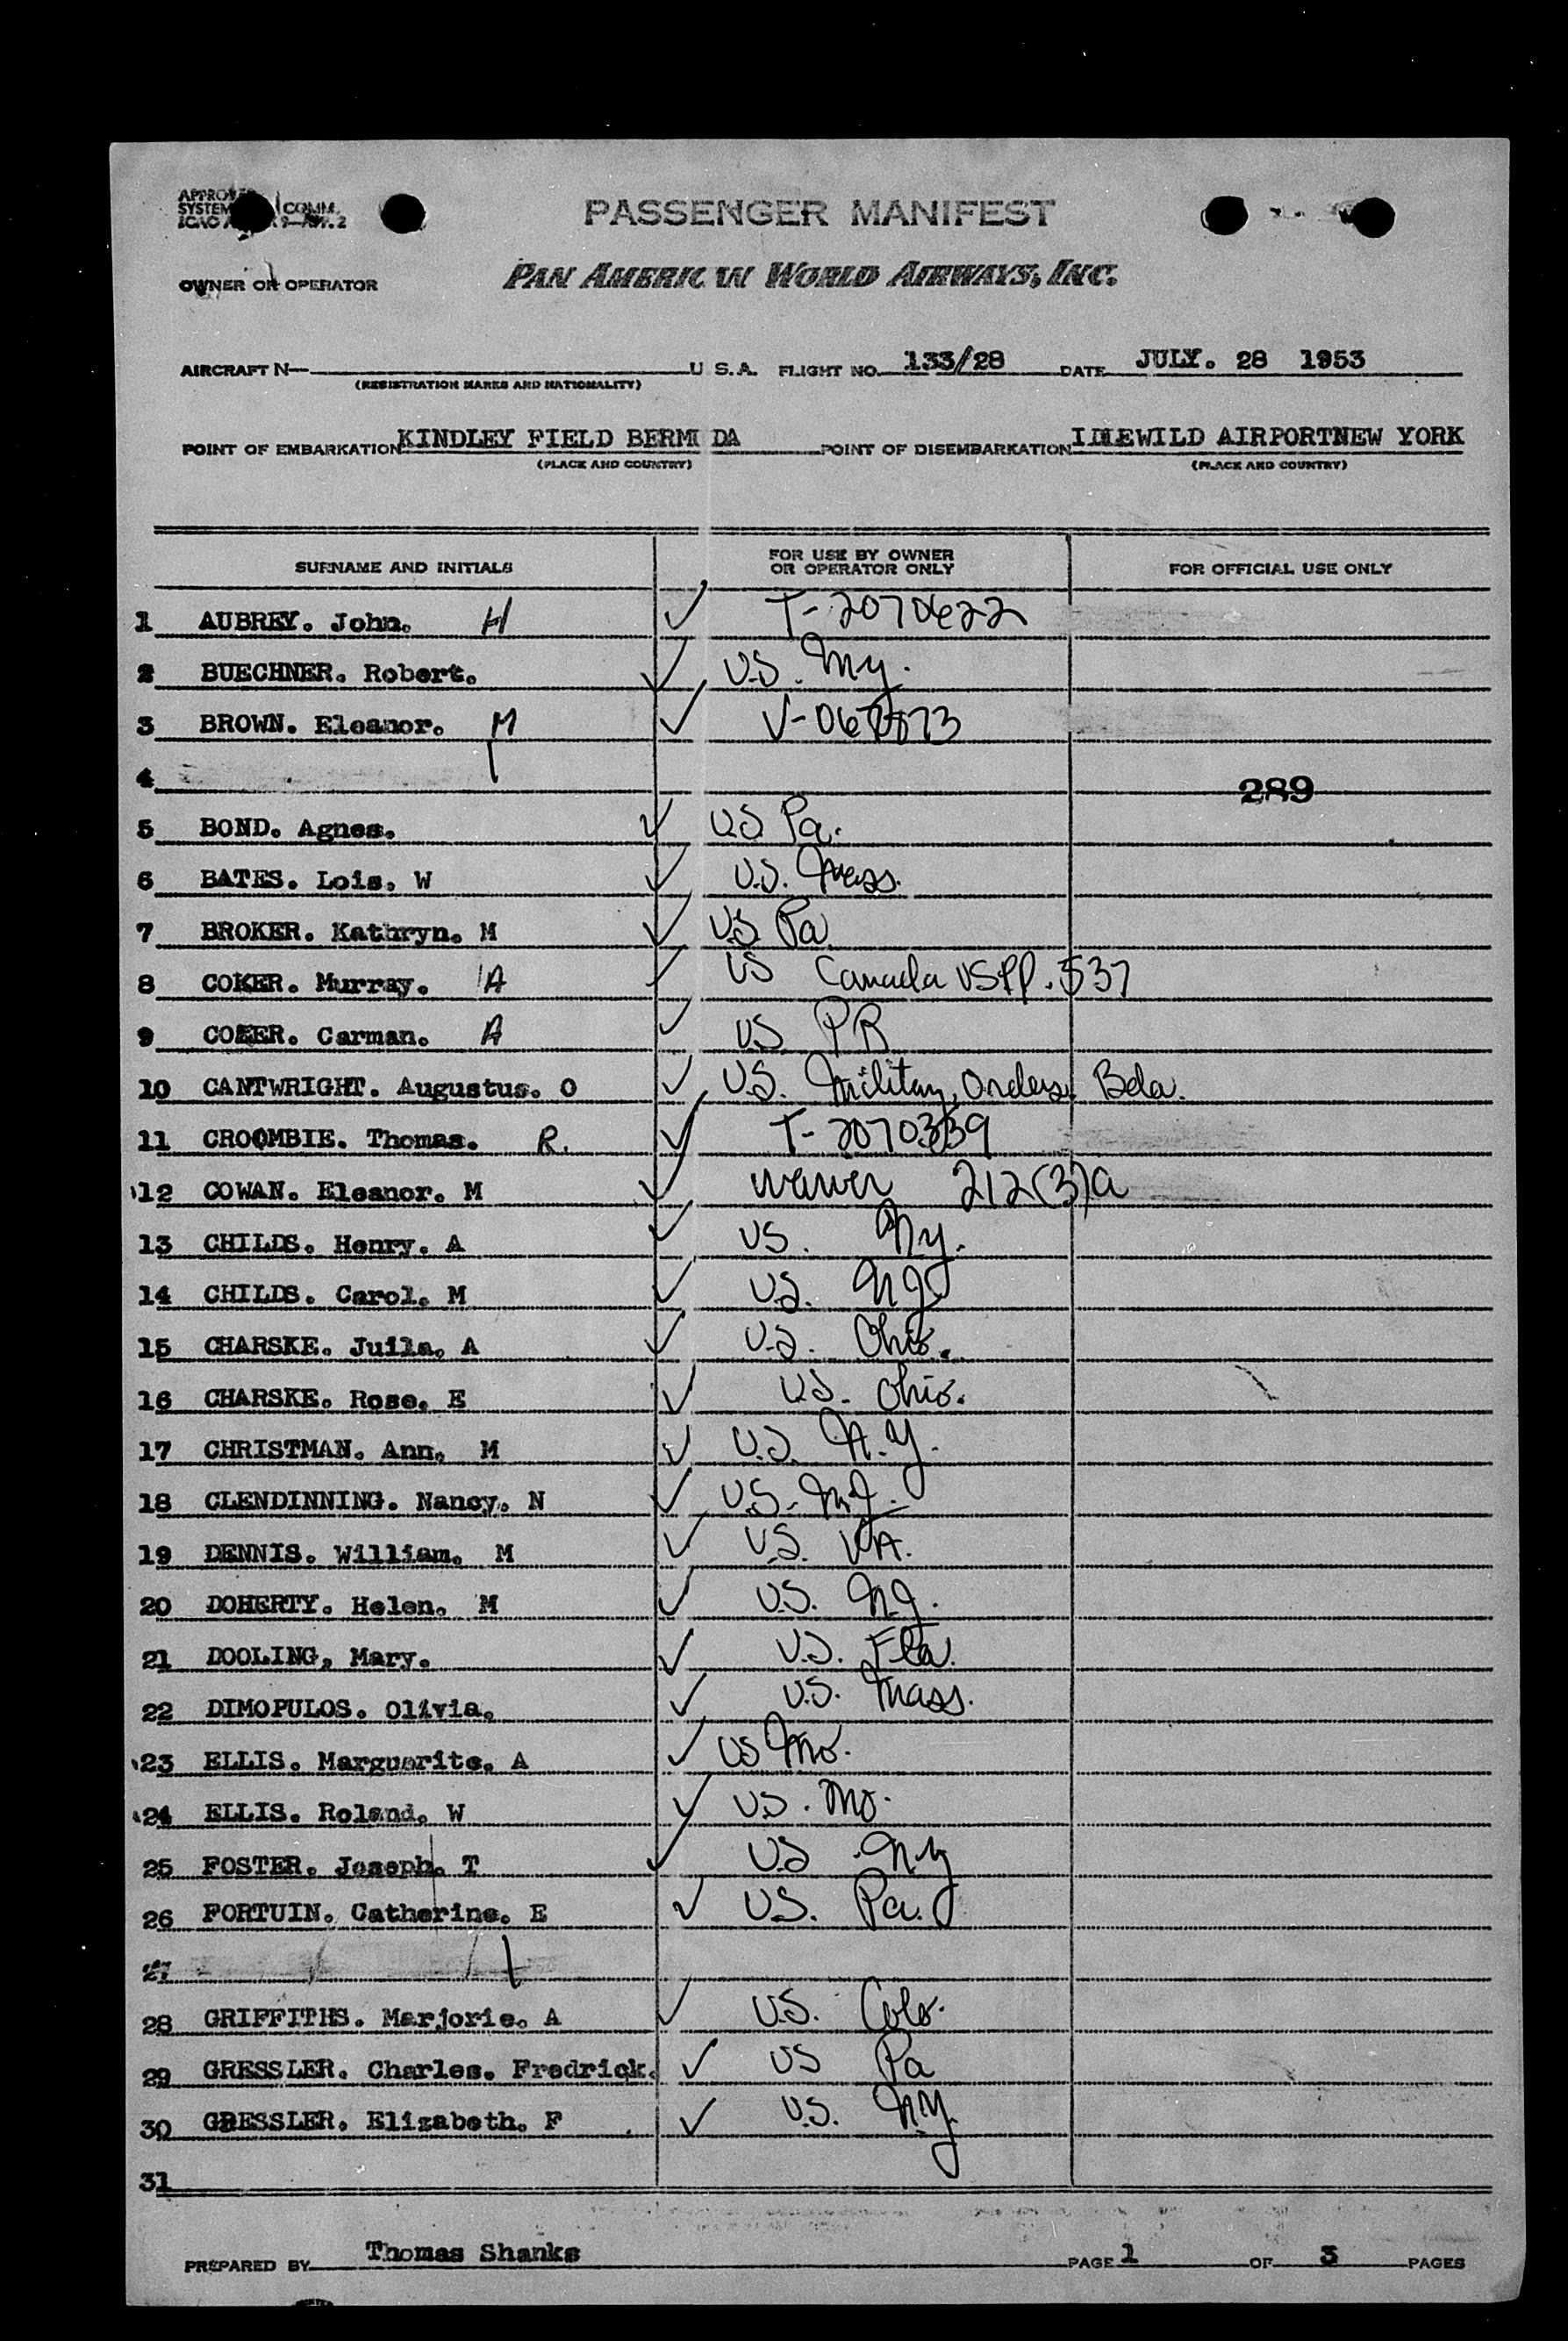 PASSENGER MANIFEST
OWNER OR OPERATOR PAN AMERICAN WORLD AIRWAYS, INC.
AIRCRAFT N— U.S.A. FLIGHT NO. 133/28 DATE JULY. 28 1953
(REGISTRATION MARKS AND NATIONALITY)
POINT OF EMBARKATION KINDLEY FIELD BERMUDA POINT OF DISEMBARKATION IDLEWILD AIRPORTNEW YORK
(PLACE AND COUNTRY) (PLACE AND COUNTRY)
SURNAME AND INITIALS FOR USE BY OWNER OR OPERATOR ONLY FOR OFFICIAL USE ONLY
1 AUBREY. John. H ✓ T-2070622
2 BUECHNER. Robert. ✓ U.S. Ny.
3 BROWN. Eleanor. M ✓
4
289
5 BOND. Agnes. ✓ US Pa.
6 BATES. Lois. W ✓ U.S. Mass.
7 BROKER. Kathryn. M ✓ US Pa
8 COKER. Murray. A ✓ US Canada USPP. 537
9 COKER. Carman. A ✓ US PR
10 CANTWRIGHT. Augustus. O ✓ U.S. Military Orders Bda.
11 CROOMBIE. Thomas. R. ✓ T-2070339
12 COWAN. Eleanor. M ✓ waiver 212(3)a
13 CHILDS. Henry. A ✓ US. Ny.
14 CHILDS. Carol. M ✓ US. NJ
15 CHARSKE. Juila. A ✓ U.S. Ohio.
16 CHARSKE. Rose. E ✓ US. Ohio.
17 CHRISTMAN. Ann. M ✓ U.S. N.Y.
18 CLENDINNING. Nancy. N ✓ U.S. NJ.
19 DENNIS. William. M ✓ U.S. VA.
20 DOHERTY. Helen. M ✓ U.S. N.J.
21 DOOLING, Mary. ✓ U.S. Fla.
22 DIMOPULOS. Olivia. ✓ U.S. Mass.
23 ELLIS. Marguerite. A ✓ US Mo.
24 ELLIS. Roland. W ✓ US. Mo.
25 FOSTER. Joseph. T ✓ US NY
26 FORTUIN. Catherine. E ✓ U.S. Pa.
27
28 GRIFFITHS. Marjorie. A ✓ U.S. Colo.
29 GRESSLER. Charles. Fredrick. ✓ US Pa
30 GRESSLER. Elizabeth. F ✓ U.S. NY.
31
PREPARED BY Thomas Shanks PAGE 1 OF 3 PAGES